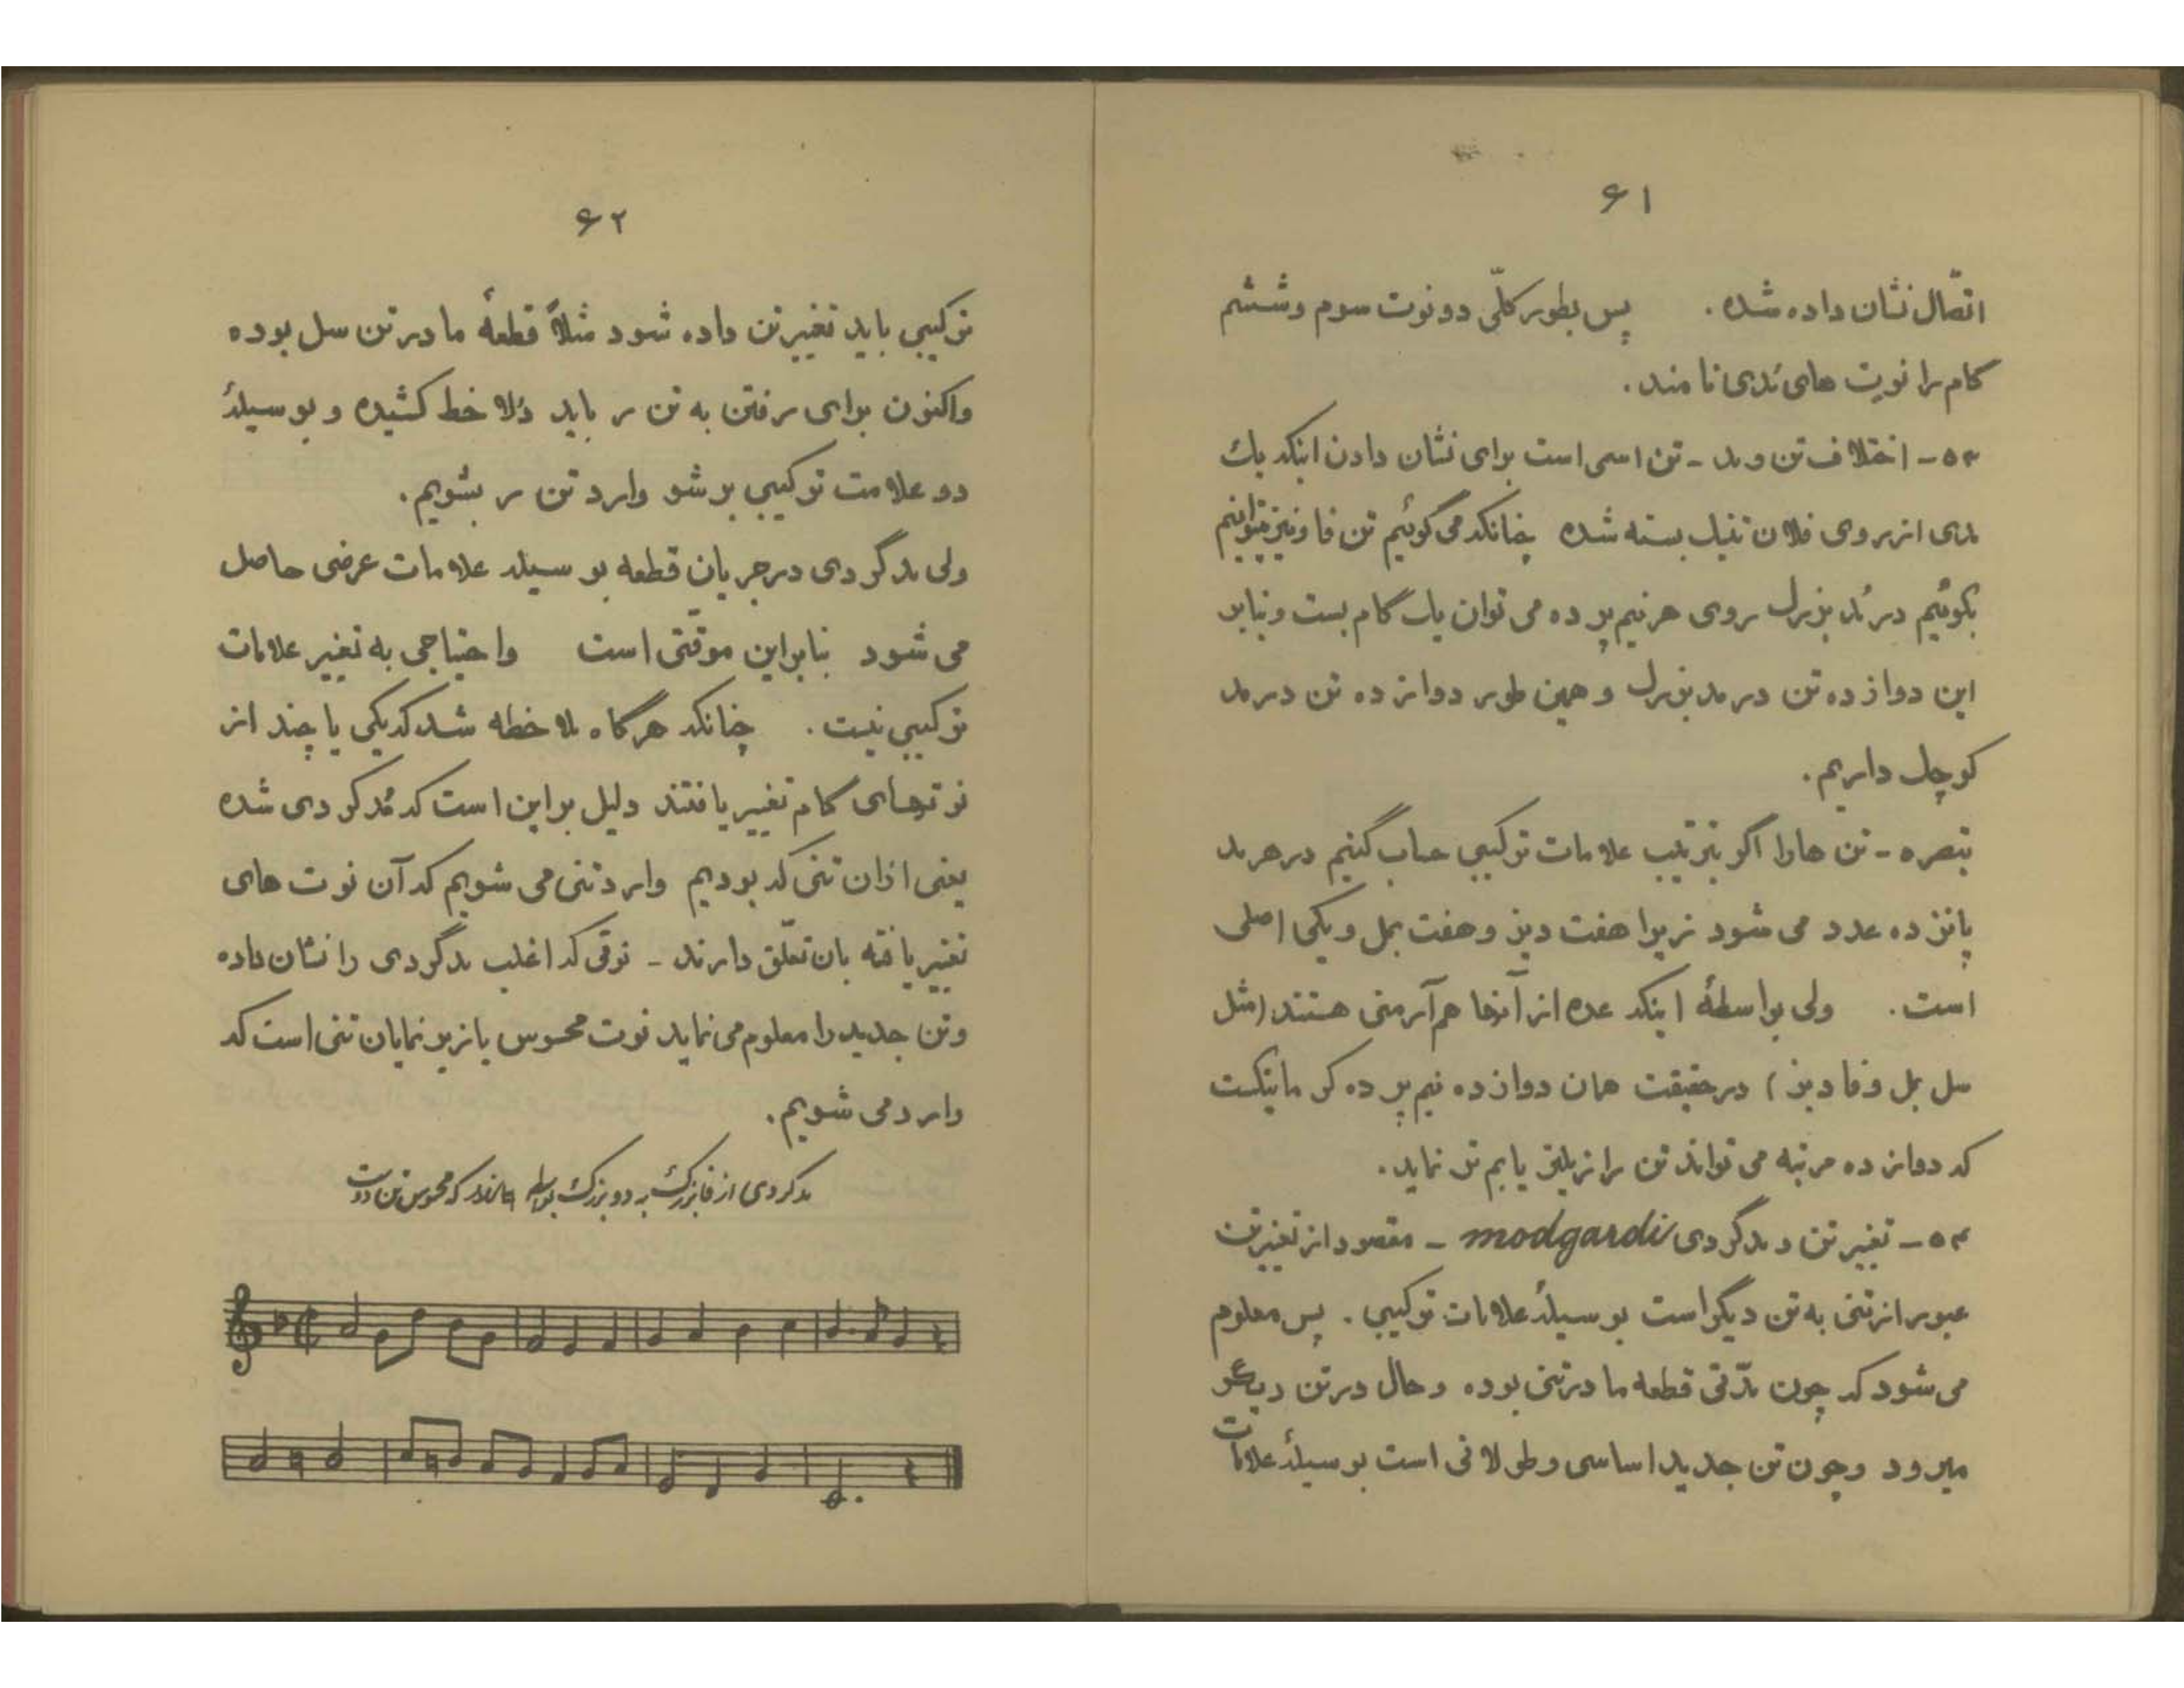 ۶۱
اتّصال نشان داده شده. پس بطور کلّی دو نوت سوم و ششم
گام را نوت های مُدی نامند.
۵۳- اختلاف تن و مد - تن اسمی است برای نشان دادن اینکه یک
مدی از روی فلان تنیک بسته شده چنانکه می گوئیم تن فا و نیز میتوانیم
بگوئیم در مُد بزرگ روی هر نیم پرده می توان یک گام بست و بنابر
این دوازده تن در مد بزرگ و همین طور دوازده تن در مد
کوچک داریم.
تبصره - تن ها را اگر بترتیب علامات ترکیبی حساب کنیم در هر مد
پانزده عدد می شود زیرا هفت دیز و هفت بمل و یکی اصلی
است. ولی بواسطهٔ اینکه عده از آنها هم آرمنی هستند (مثل
سل بمل و فا دیز) در حقیقت همان دوازده نیم پرده کر ماتیکست
که دوازده مرتبه می تواند تن را زیلتر یا بم تر نماید.
۵۴- تغییر تن و مدگردی modgardi - مقصود از تغییر تن
عبور از تنی به تن دیگر است بوسیلهٔ علامات ترکیبی. پس معلوم
می شود که چون مدّتی قطعه ما در تنی بوده و حال در تن دیگر
میرود و چون تن جدید اساسی و طولانی است بوسیلهٔ علامات
۶۲
ترکیبی باید تغییر تن داده شود مثلاً قطعهٔ ما در تن سل بوده
و اکنون برای رفتن به تن ر باید دُلا خط کشیده و بوسیلهٔ
دو علامت ترکیبی بر شو وارد تن ر بشویم.
ولی مدگردی در جریان قطعه بوسیله علامات عرضی حاصل
می شود بنابراین موقّتی است و احتیاجی به تغییر علامات
ترکیبی نیست. چنانکه هرگاه ملاحظه شد که یکی یا چند از
نوتهای گام تغییر یافتند دلیل بر این است که مُدگردی شده
یعنی از ان تنی که بودیم وارد تنی می شویم که آن نوت های
تغییر یافته بان تعلّق دارند - نوتی که اغلب مدگردی را نشان داده
و تن جدید را معلوم می نماید نوت محسوس یا زیر نمایان تنی است که
وارد می شویم.
مدگردی از فا بزرگ به دو بزرگ بواسطه که محسوس تن دوست